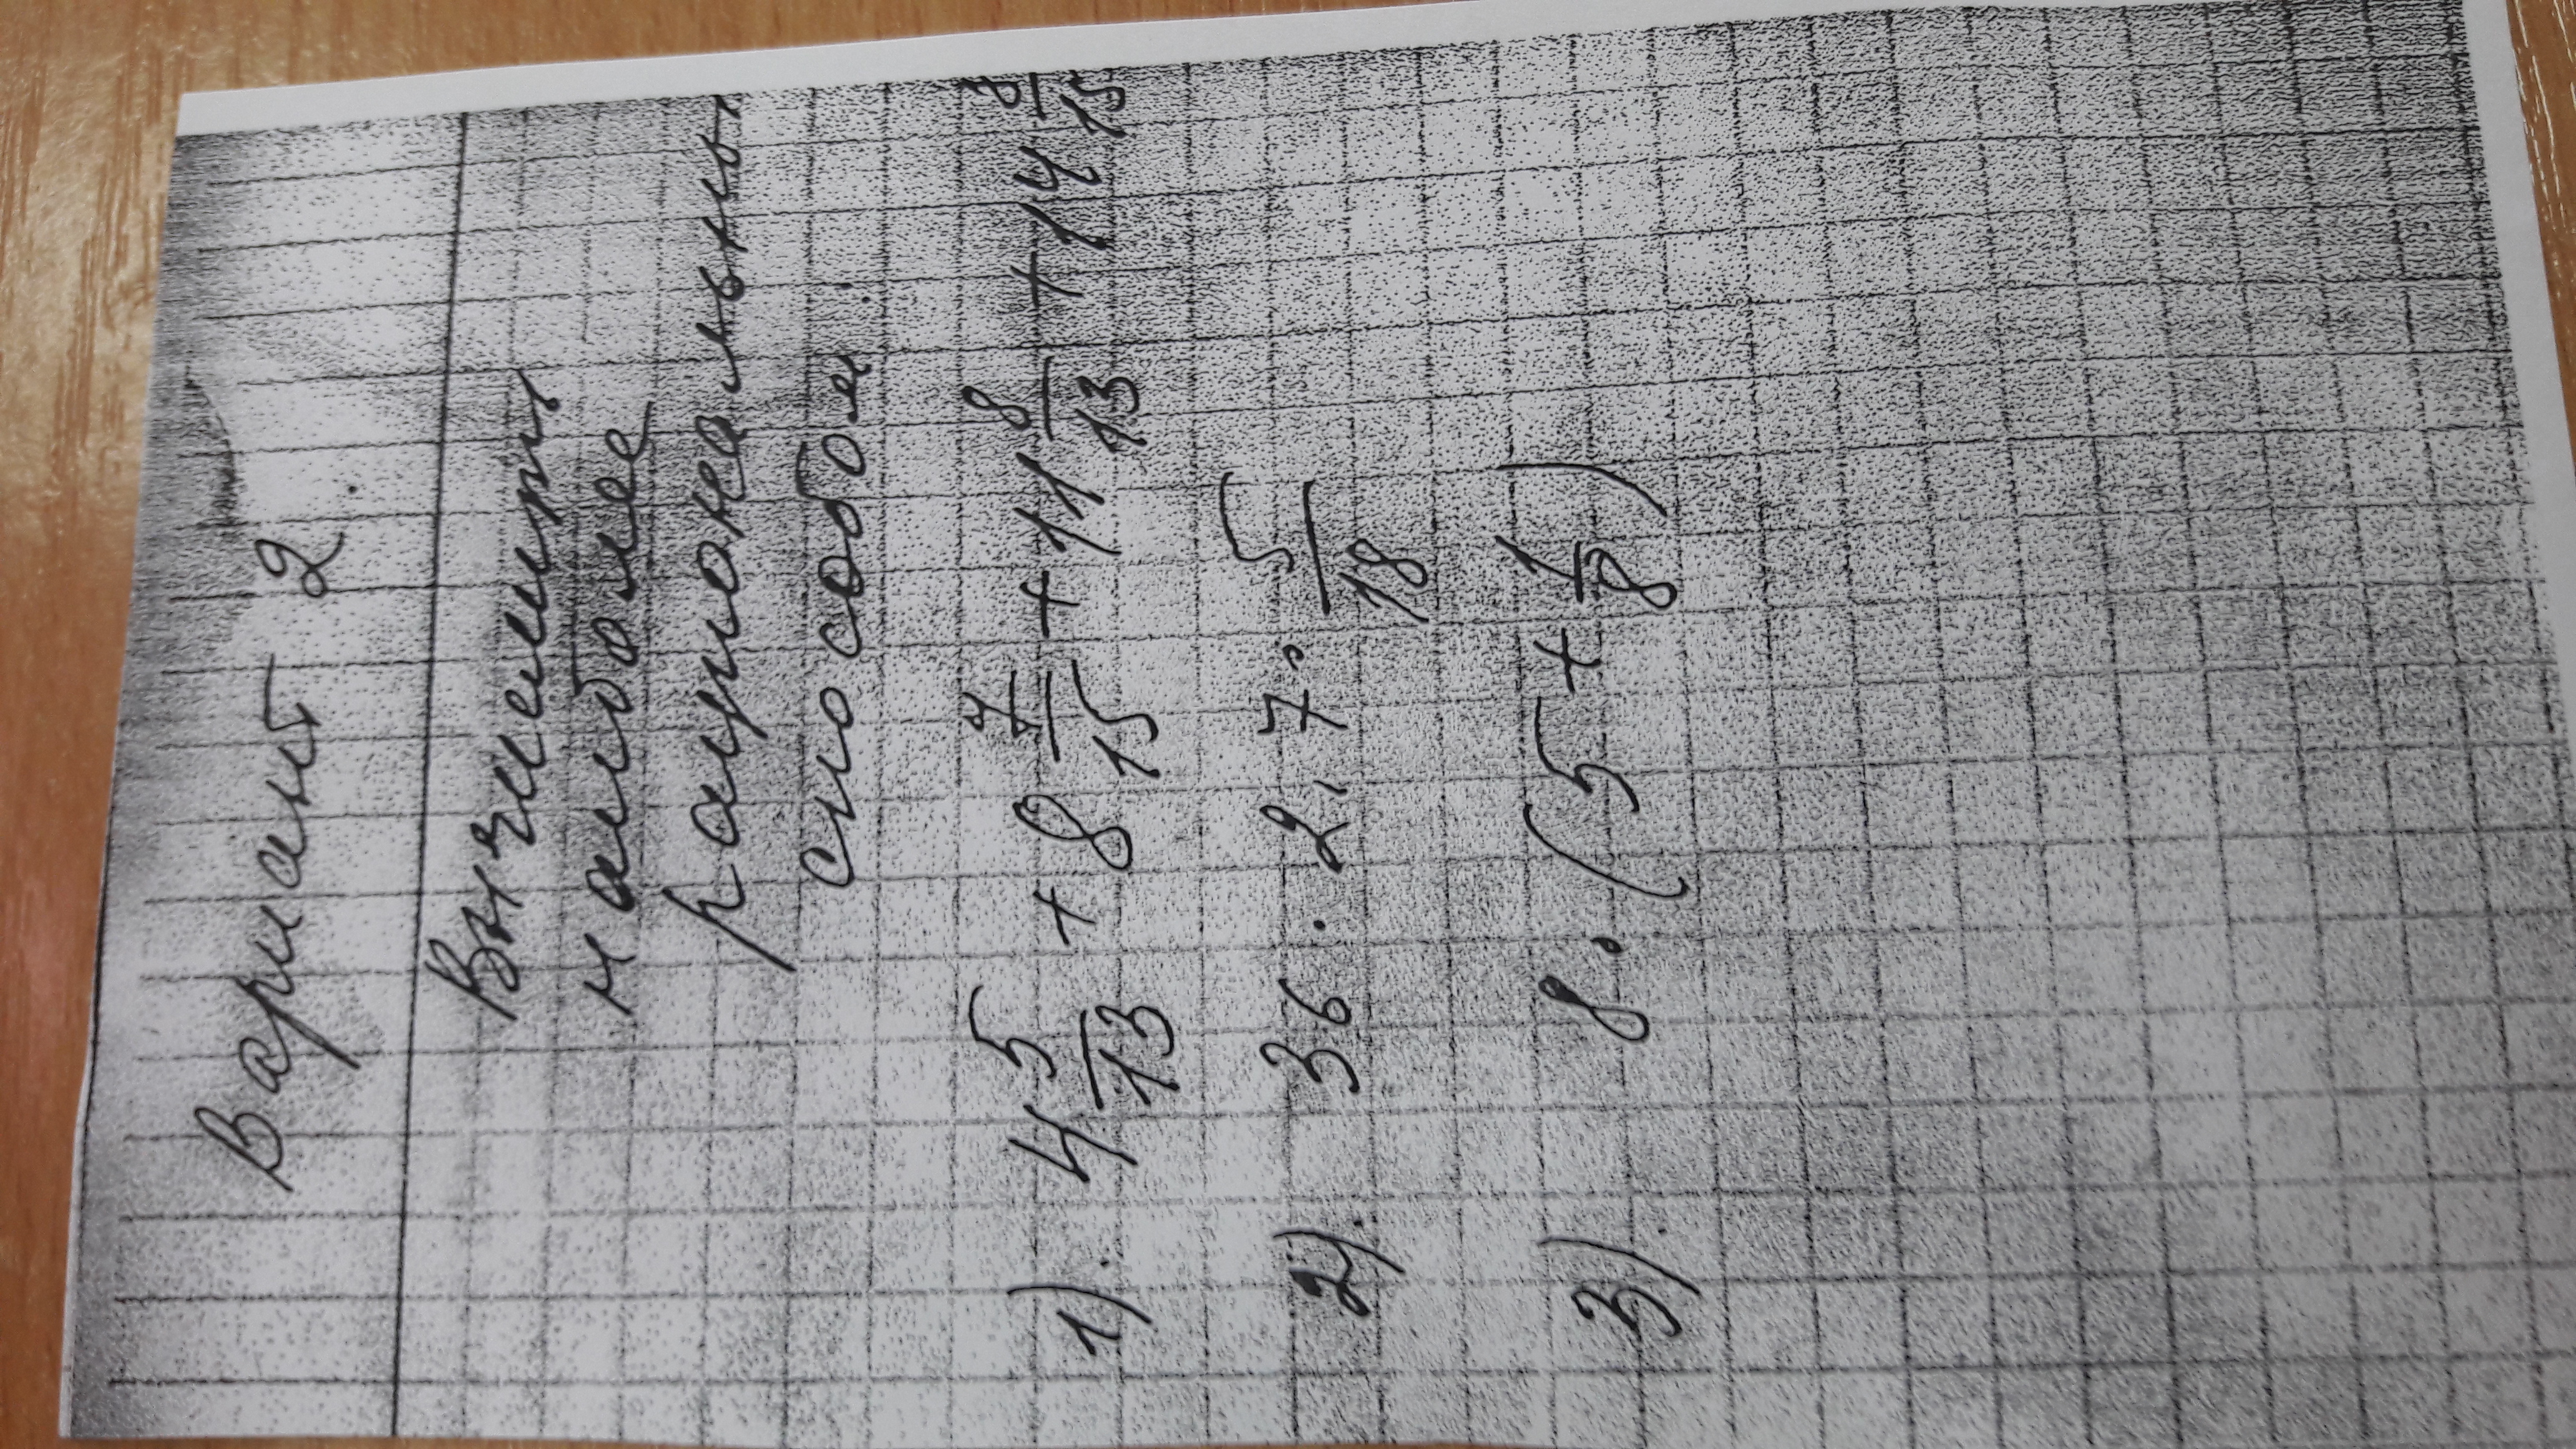 Вариант 2.
Вычислить
наиболее
рациональны
способом:
1). 4 5/13 + 8 7/15 + 11 8/13 + 14 8/15
2). 36 · 2,7 · 5/18
3). 8 · (5 + 1/8)